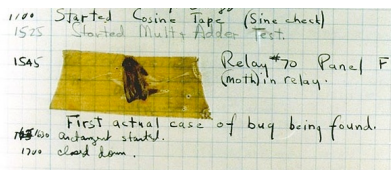 1100 Started Cosine Tape (Sine check)
1525 Started Mult + Adder Test.
1545 Relay #70 Panel F
(Moth) in relay.
First actual case of bug being found.
1630 antangent started.
1700 closed down.